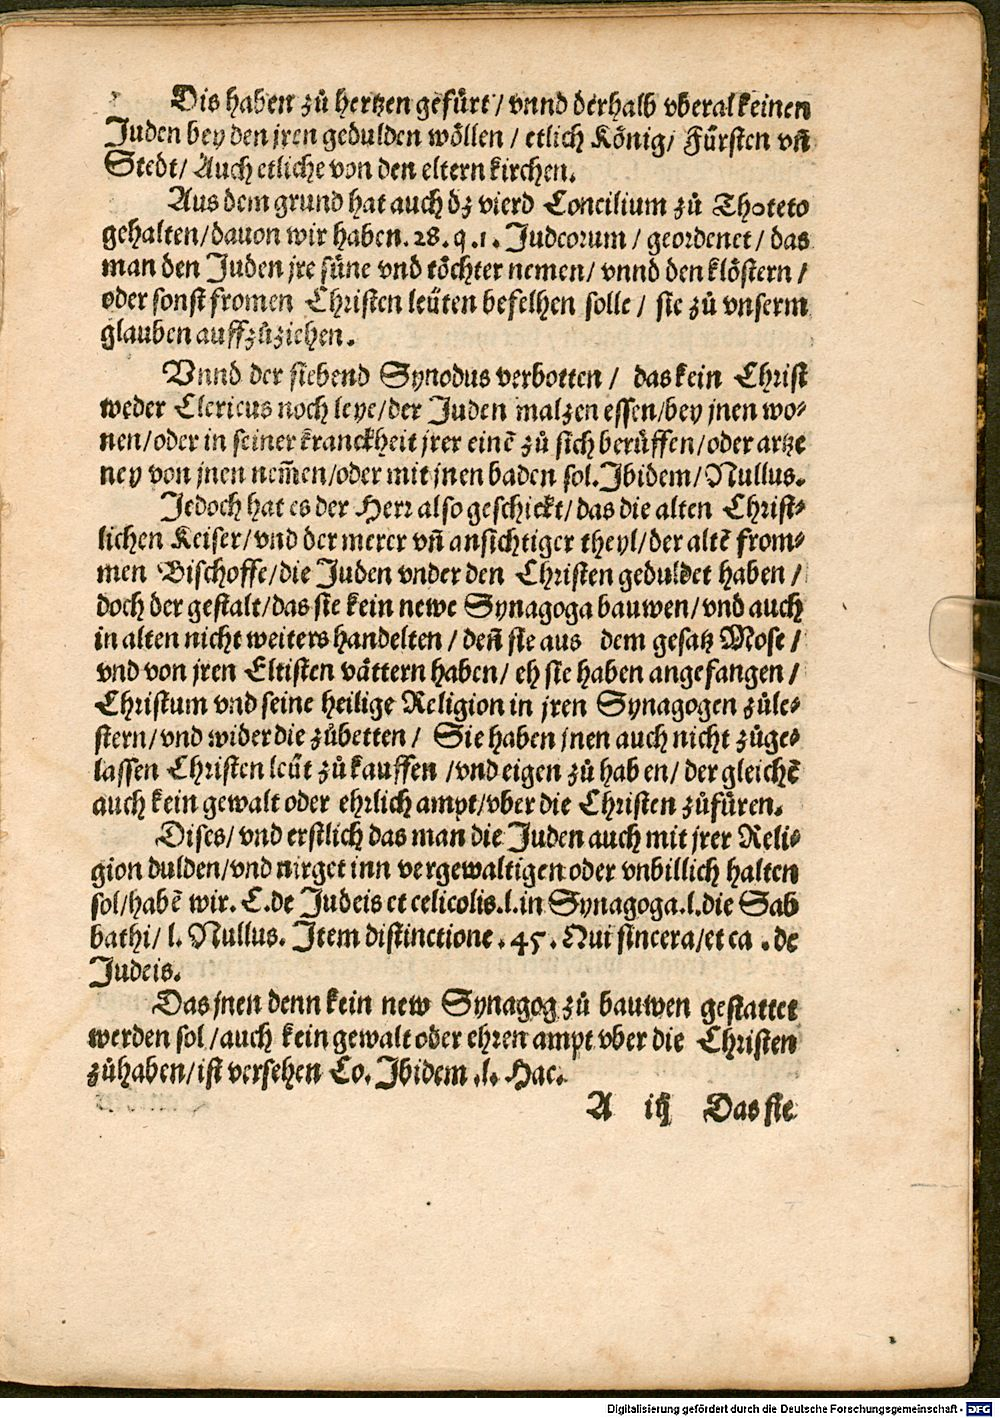 Dis haben zů hertzen gefürt / vnnd derhalb vberal keinen
Juden bey den jren gedulden wöllen / etlich König / Fürsten vñ
Stedt / Auch etliche von den eltern kirchen.
Aus dem grund hat auch dz vierd Concilium zů Thoteto
gehalten / dauon wir haben. 28. q. 1. Judeorum / geordenet / das
man den Juden jre süne vnd töchter nemen / vnnd den klöstern /
oder sonst fromen Christen leüten befelhen solle / sie zů vnserm
glauben auffzůziehen.
Vnnd der siebend Synodus verbotten / das kein Christ
weder Clericus noch leye / der Juden malzen essen / bey jnen wo⸗
nen / oder in seiner kranckheit jrer einē zů sich berůffen / oder artze
ney von jnen nem̄en / oder mit jnen baden sol. Ibidem / Nullus.
Jedoch hat es der Herr also geschickt / das die alten Christ⸗
lichen Keiser / vnd der merer vñ ansichtiger theyl / der altē from⸗
men Bischoffe / die Juden vnder den Christen geduldet haben /
doch der gestalt / das sie kein newe Synagoga bauwen / vnd auch
in alten nicht weiters handelten / deñ sie aus dem gesatz Mose /
vnd von jren Eltisten vättern haben / eh sie haben angefangen /
Christum vnd seine heilige Religion in jren Synagogen zůle⸗
stern / vnd wider die zůbetten / Sie haben jnen auch nicht zůge⸗
lassen Christen leüt zů kauffen / vnd eigen zů haben / der gleichē
auch kein gewalt oder ehrlich ampt / vber die Christen zůfüren.
Dises / vnd erstlich das man die Juden auch mit jrer Reli⸗
gion dulden / vnd nirget inn vergewaltigen oder vnbillich halten
sol / habē wir. C. de Judeis et celicolis. l. in Synagoga. l. die Sab
bathi / l. Nullus. Item distinctione. 45. Qui sincera / et ca. de
Judeis.
Das jnen denn kein new Synagog zů bauwen gestattet
werden sol / auch kein gewalt oder ehren ampt vber die Christen
zůhaben / ist versehen Co. Ibidem. l. Hac.
A iij Das sie
Digitalisierung gefördert durch die Deutsche Forschungsgemeinschaft - DFG